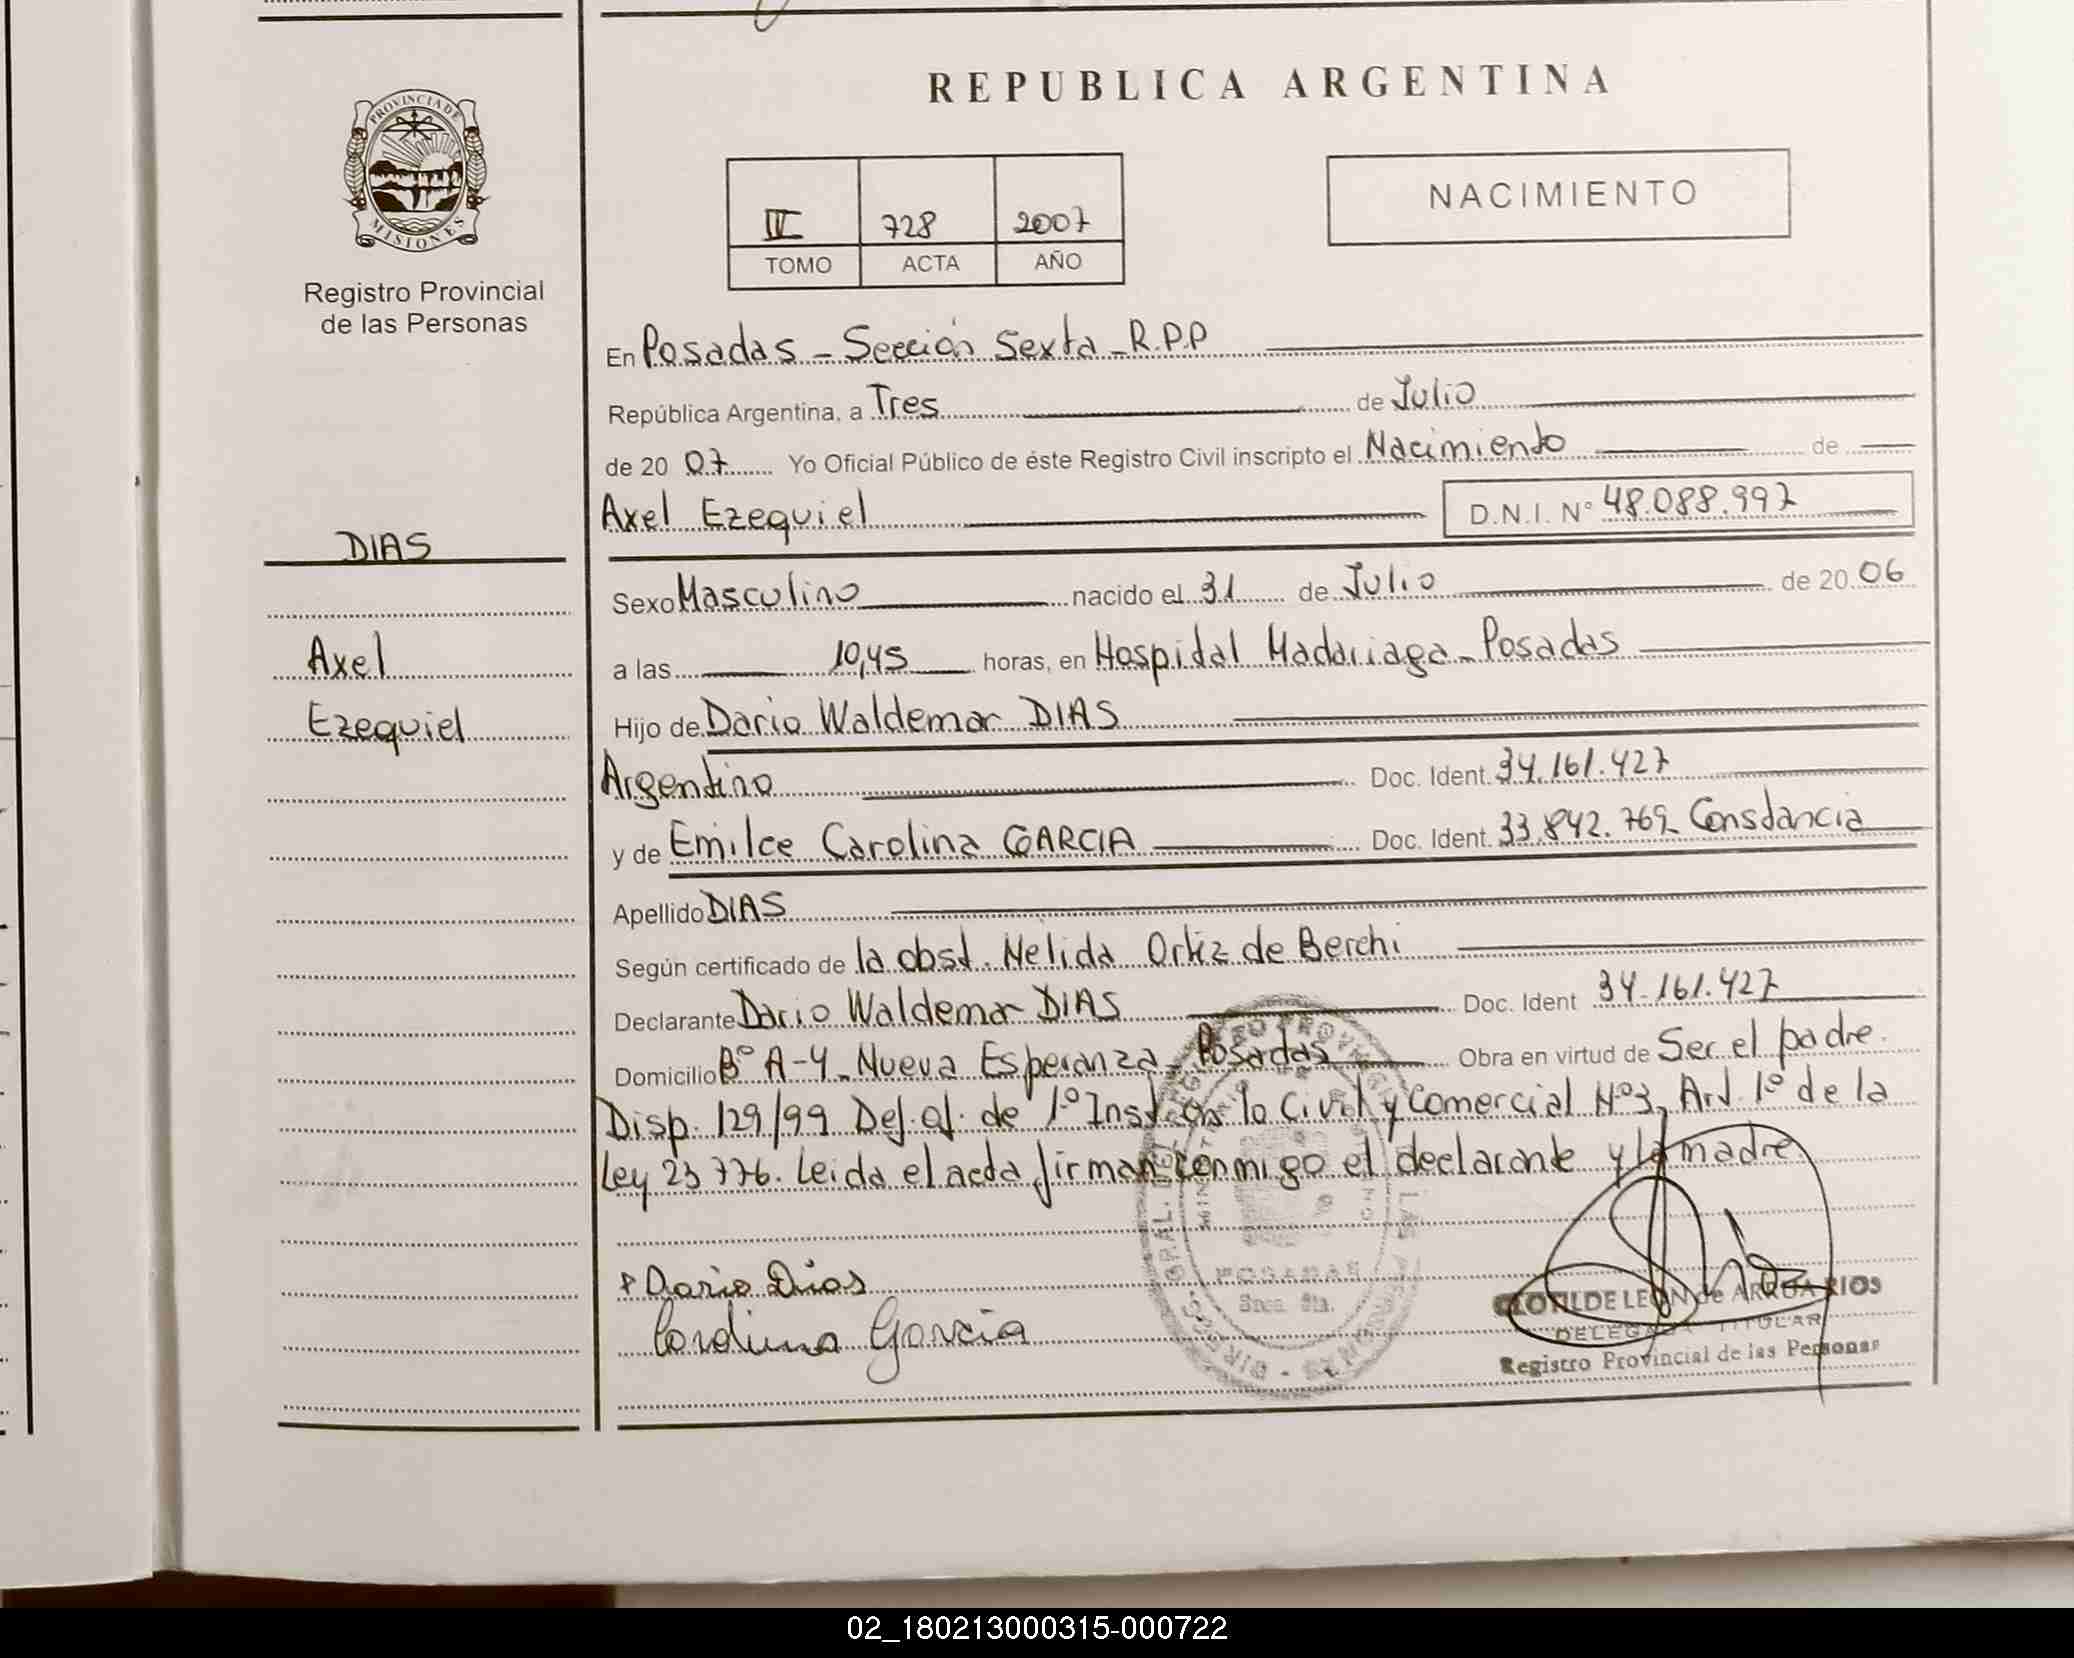 REPUBLICA ARGENTINA
PROVINCIA DE
MISIONES
Registro Provincial
de las Personas
IV 728 2007
TOMO ACTA AÑO
NACIMIENTO
En Posadas - Sección Sexta - R.P.P
República Argentina, a Tres de Julio
de 20 07 Yo Oficial Público de éste Registro Civil inscripto el Nacimiento de
Axel Ezequiel D.N.I. N° 48.088.997
DIAS
Axel
Ezequiel
Sexo Masculino nacido el 31 de Julio de 20 06
a las 10,45 horas, en Hospital Madariaga - Posadas
Hijo de Dario Waldemar DIAS
Argentino Doc. Ident. 34.161.427
y de Emilce Carolina GARCIA Doc. Ident. 33.842.769 Constancia
Apellido DIAS
Según certificado de la obst. Nelida Ortiz de Berchi
Declarante Dario Waldemar DIAS Doc. Ident 34.161.427
Domicilio B° A-4 - Nueva Esperanza - Posadas Obra en virtud de Ser el padre.
Disp. 129/99 Def. of. de 1° Inst. en lo Civil y Comercial N°3, Art. 1° de la
Ley 23776. Leida el acta firman conmigo el declarante y la madre
Dario Dias
Carolina Garcia
POSADAS
Secc. 6ta.
CLOTILDE LEON de ARRUA RIOS
DELEGADA TITULAR
Registro Provincial de las Personas
02_180213000315-000722